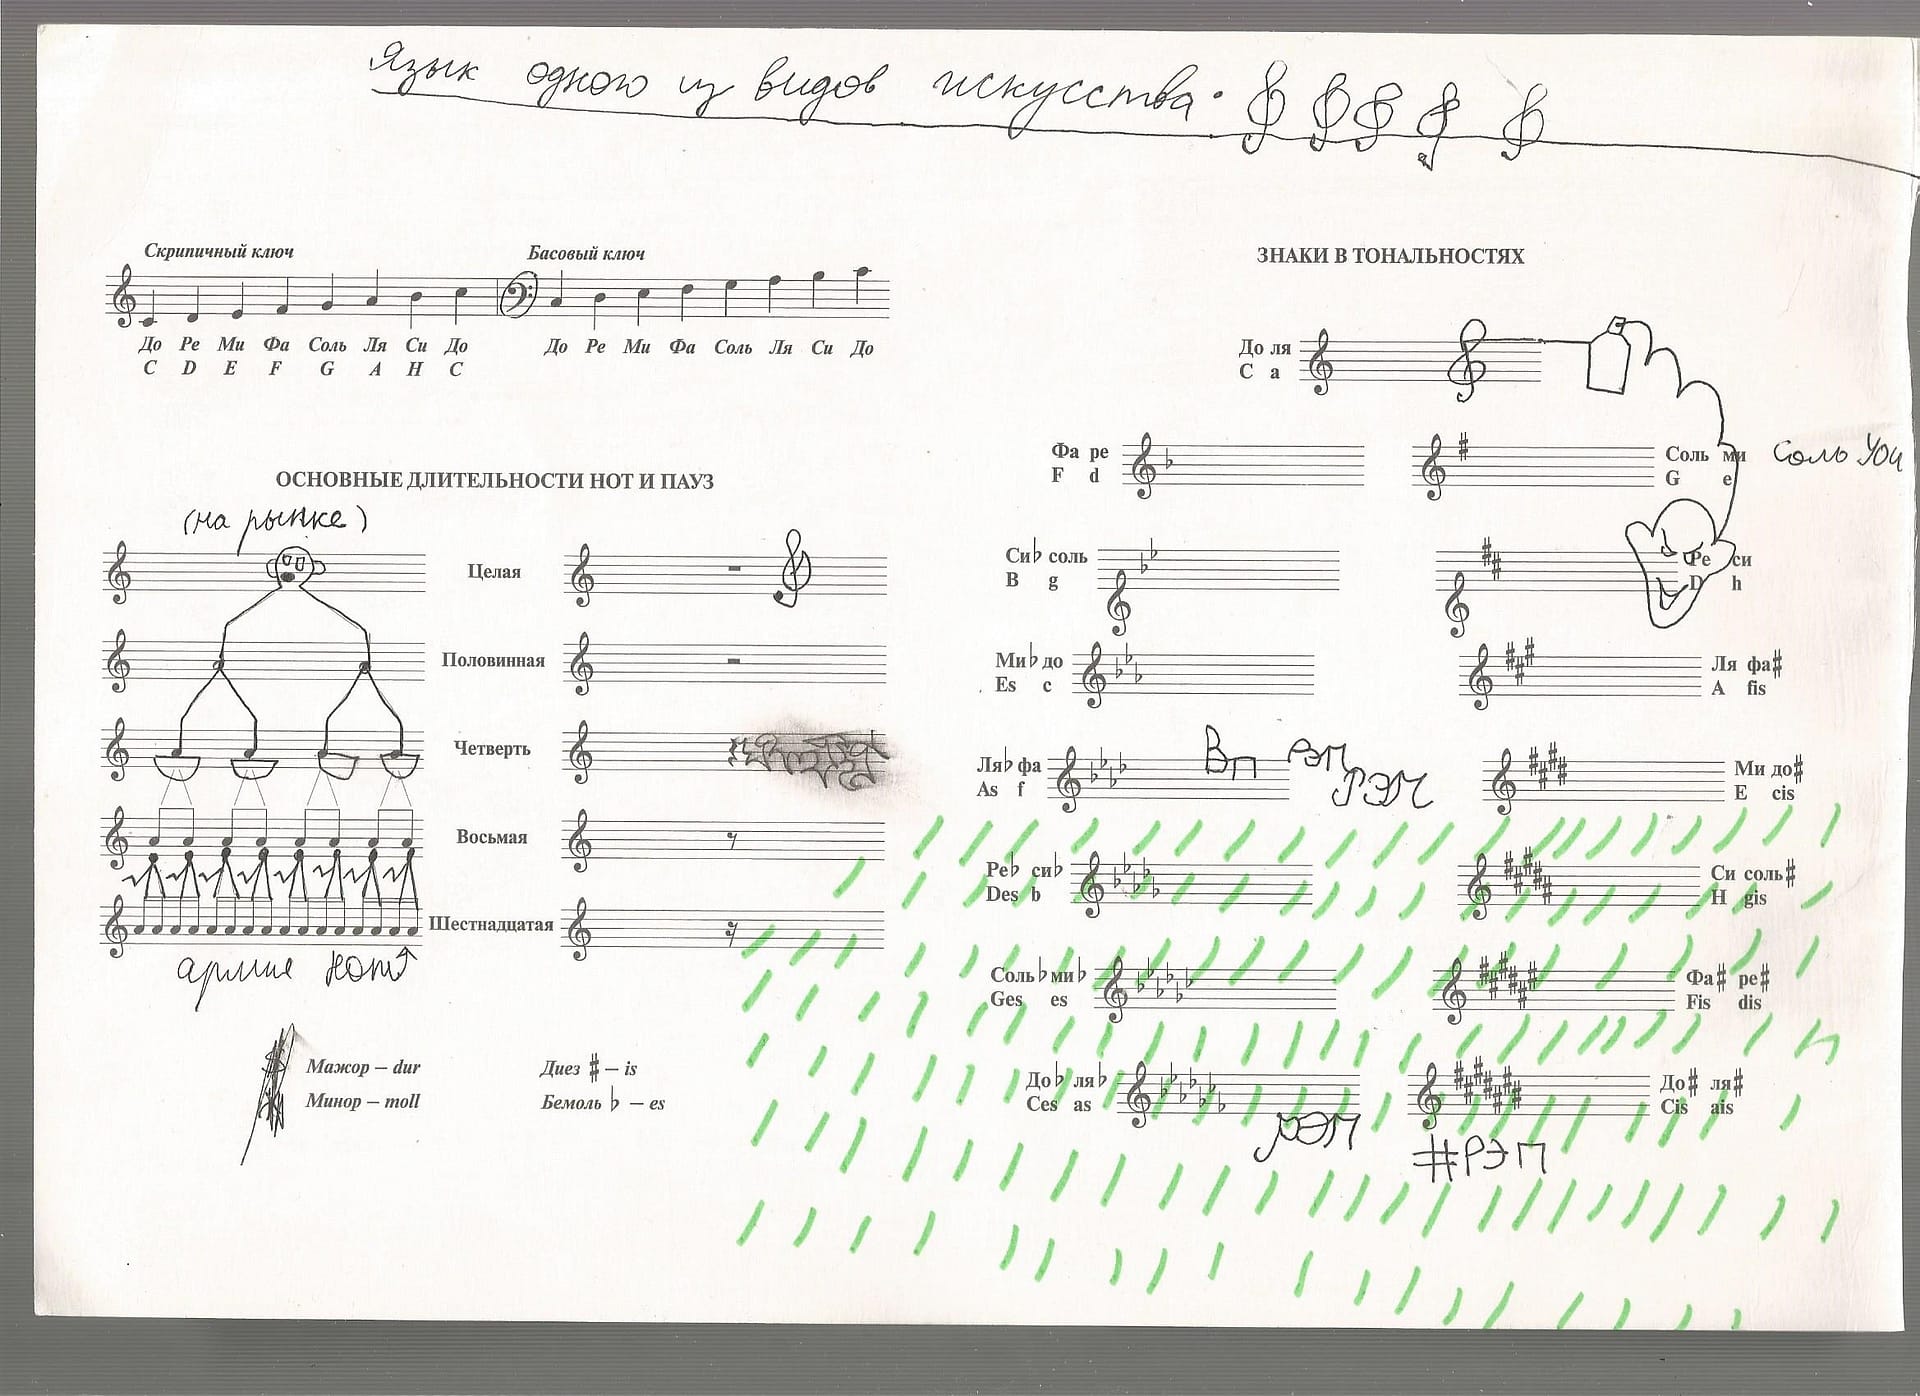 Язык одного из видов искусства.
Скрипичный ключ Басовый ключ
До Ре Ми Фа Соль Ля Си До До Ре Ми Фа Соль Ля Си До
C D E F G A H C
ОСНОВНЫЕ ДЛИТЕЛЬНОСТИ НОТ И ПАУЗ
(на рынке)
Целая
Половинная
Четверть
Восьмая
Шестнадцатая
армия нот
Мажор – dur Диез ♯ – is
Минор – moll Бемоль ♭ – es
ЗНАКИ В ТОНАЛЬНОСТЯХ
До ля
C a
Фа ре Соль ми Соль You
F d G e
Си♭ соль Ре си
B g D h
Ми♭ до Ля фа♯
Es c A fis
Вп рэп
рэп
Ля♭ фа Ми до♯
As f E cis
Ре♭ си♭ Си соль♯
Des b H gis
Соль♭ ми♭ Фа♯ ре♯
Ges es Fis dis
До♭ ля♭ До♯ ля♯
Ces as Cis ais
рэп
#рэп